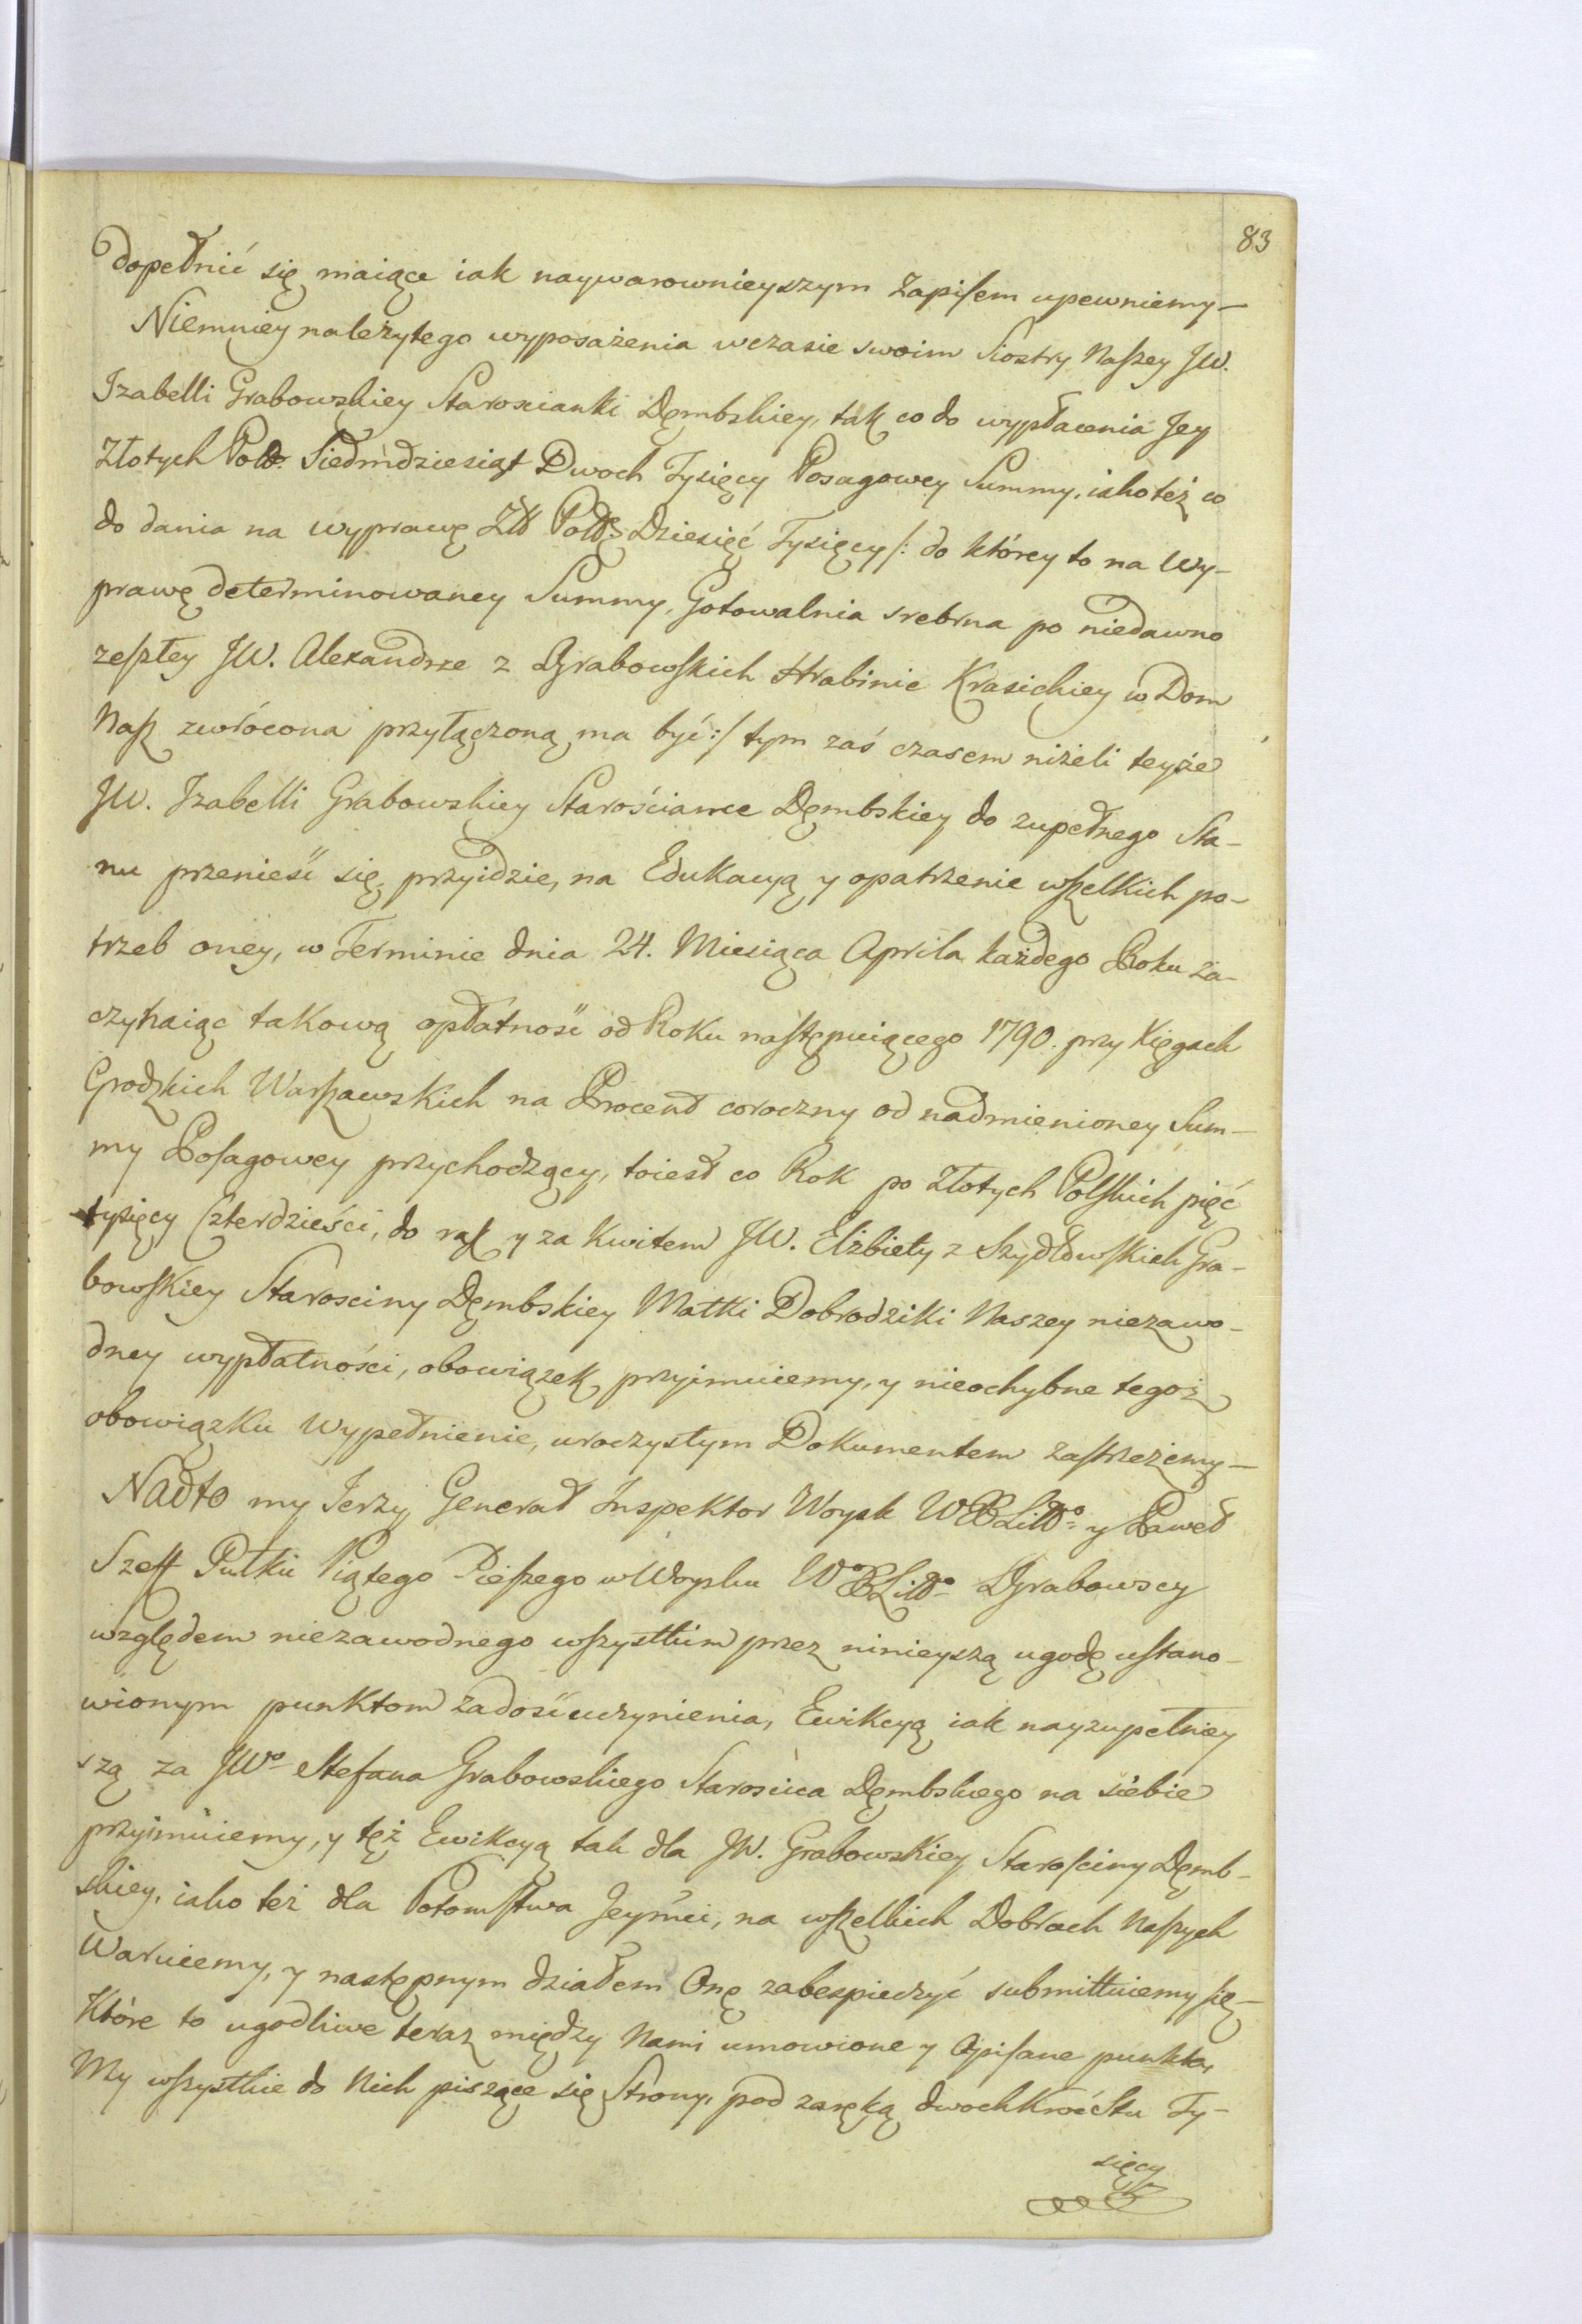 83
dopełnić się maiące iak naywarownieyszym Zapisem upewniemy—
Niemniey należytego wyposażenia wczasie swoim Siostry Naszey JW.
Izabelli Grabowskiey Starościanki Dęmbskiey, tak co do wypłacenia Jey
Złotych Pol: Siedmdziesiąt Dwoch Tysięcy Posagowey Summy, iako też co
do dania na wyprawę Zł Pol: Dziesięć Tysięcy /: do którey to na Wy-
prawę determinowaney Summy, Gotowalnia srebrna po niedawno
zeszłey JW. Alexandrze z Grabowskich Hrabinie Krasickiey w Dom
Nasz zwrócona przyłączoną ma być :/ tym zaś czasem niżeli teyże
JW. Izabelli Grabowskiey Starościance Dęmbskiey do zupełnego Sta-
nu przenieść się przyidzie, na Edukacyą y opatrzenie wszelkich po-
trzeb oney, w Terminie dnia 24. Miesiąca Aprila każdego Roku za-
czynaiąc takową opłatność od Roku następuiącego 1790. przy Xięgach
Grodzkich Warszawskich na Procent coroczny od nadmienioney Sum-
my Posagowey przychodzący, toiest co Rok po Złotych Polskich pięć
tysięcy Czterdzieści, do rąk y za Kwitem JW. Elżbiety z Szydłowskich Gra-
bowskiey Starosciny Dęmbskiey Matki Dobrodziki Naszey niezawo-
dney wypłatności, obowiązek przyimuiemy, y nieochybne tegoż
obowiązku Wypełnienie, uroczystym Dokumentem zastrzeżemy—
Nadto my Jerzy Generał Inspektor Woysk WXLitto y Paweł
Szeff Pułku Piątego Pieszego w Woysku WXLitto Grabowscy
względem niezawodnego wszystkim przez ninieyszą ugodę ustano-
wionym punktom zadośćuczynienia, Ewikcyą iak nayzupełniey
szą za JWo Stefana Grabowskiego Starościca Dęmbskiego na siebie
przyimuiemy, y tęż Ewikcyą tak dla JW. Grabowskiey Starosciny Dęmb-
skiey, iako też dla Potomstwa Jeymći, na wszelkich Dobrach Naszych
Waruiemy, y następnym działem Onę zabespieczyć submittuiemy się—
Które to ugodliwe teraz między Nami umowione y Opisane punkta,
My wszystkie do Nich piszące się Strony, pod zaręką dwochkroć Sto Ty-
sięcy